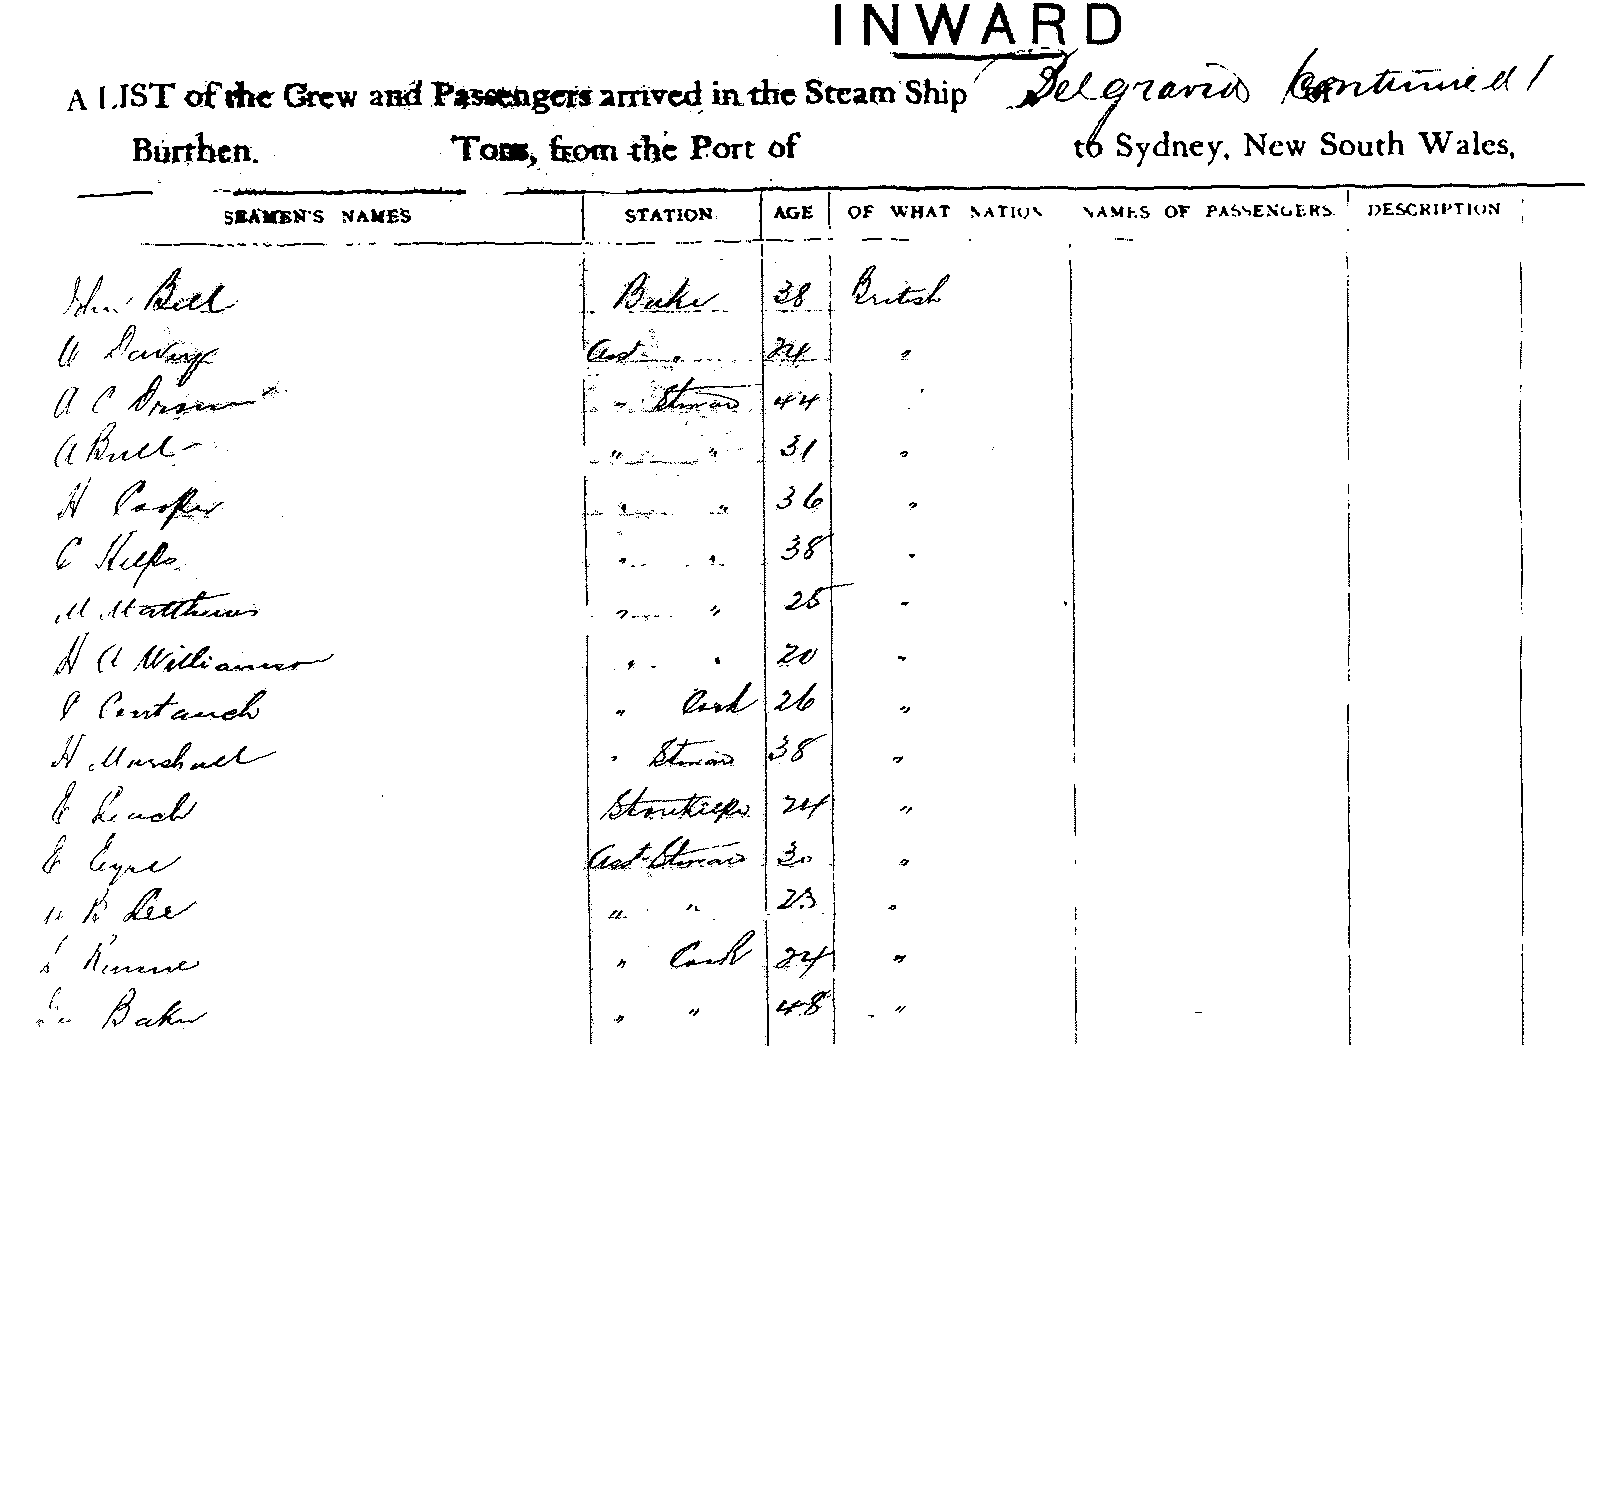 INWARD
A LIST of the Crew and Passengers arrived in the Steam Ship Belgravia Continued
Burthen. Tons, from the Port of to Sydney, New South Wales,
SEAMEN'S NAMES STATION AGE OF WHAT NATION NAMES OF PASSENGERS DESCRIPTION
John Bell Baker 38 British
Asst " 24 "
A C " Steward 44
A Bull " " 31 "
H Cooper " " 36 "
C " " 38 "
M Matthews " " 25 "
H A Williamson " " 20 "
" Cook 26 "
H Marshall " Steward 38 "
E Leach Storekeeper 24 "
E Eyre Asst Steward 30 "
B Lee " " 23 "
" Cook 24 "
Baker " " 48 "